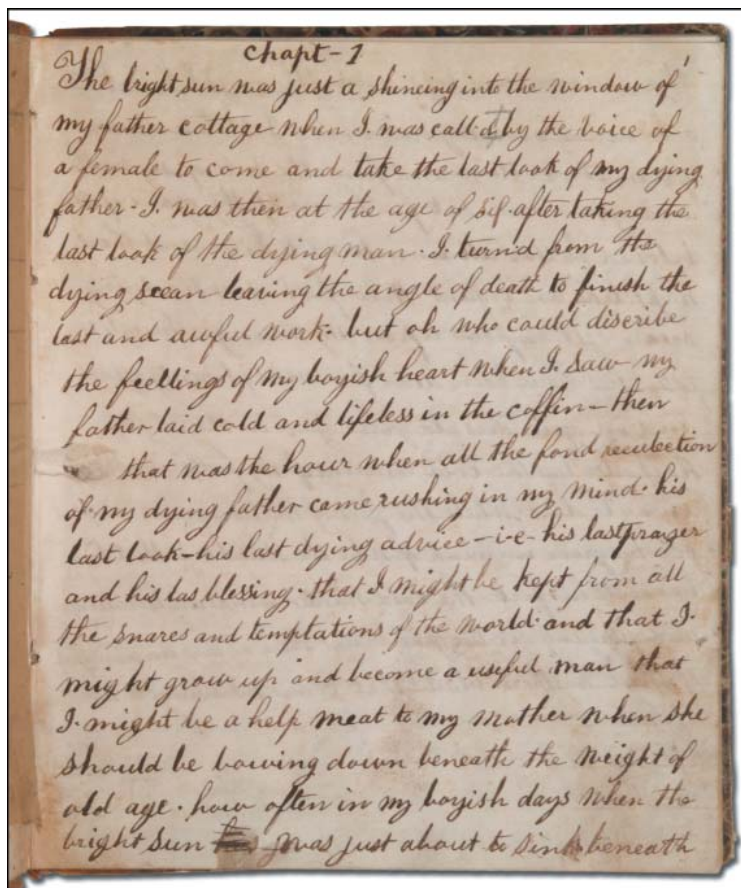 Chapt-1
1
The bright sun was just a shineing into the window of
my father cottage when I. was call.d by the voice of
a female to come and take the last look of my dying
father- I. was then at the age of six. after taking the
last look of the dying man. I. turn.d from the
dying scean leaving the angle of death to finish the
last and awful work. but oh who could discribe
the feellings of my boyish heart when I. saw my
father laid cold and lifeless in the coffin- then
that was the hour when all the fond reculection
of my dying father came rushing in my mind. his
last look-his last dying advice-i-e- his last prayer
and his las blessing. that I might be kept from all
the snares and temptations of the world. and that I.
might grow up and become a useful man that
I. might be a help meat to my mother when she
should be bowing down beneath the weight of
old age. how often in my boyish days when the
bright sun was just about to sink beneath